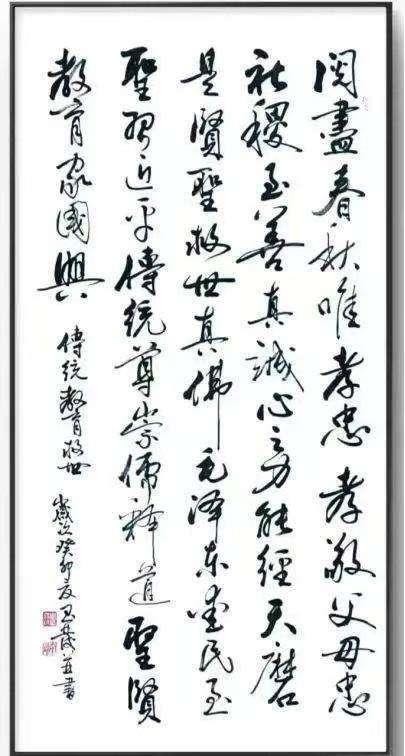 阅盡春秋唯孝忠孝敬父母忠
社稷至善真誠心之力能經天磨
是賢聖救世真佛毛泽东愛民至
聖習近平傳统尊崇儒釋道聖賢
教育家國興
傳统教育救世
歲次癸卯夏書